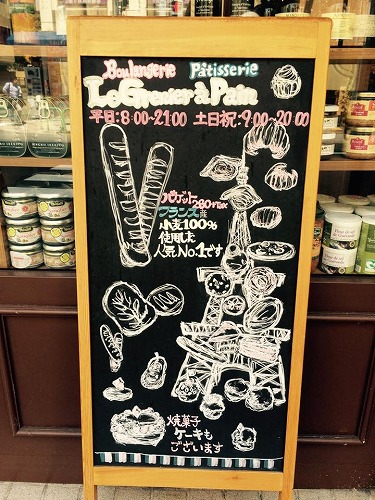 Boulangerie Pâtisserie
Le Grenier à Pain
平日:8:00~21:00 土日祝:9:00~20:00
バゲット280
フランス産
小麦100%
使用した
人気No.1です
焼菓子
ケーキも
ございます